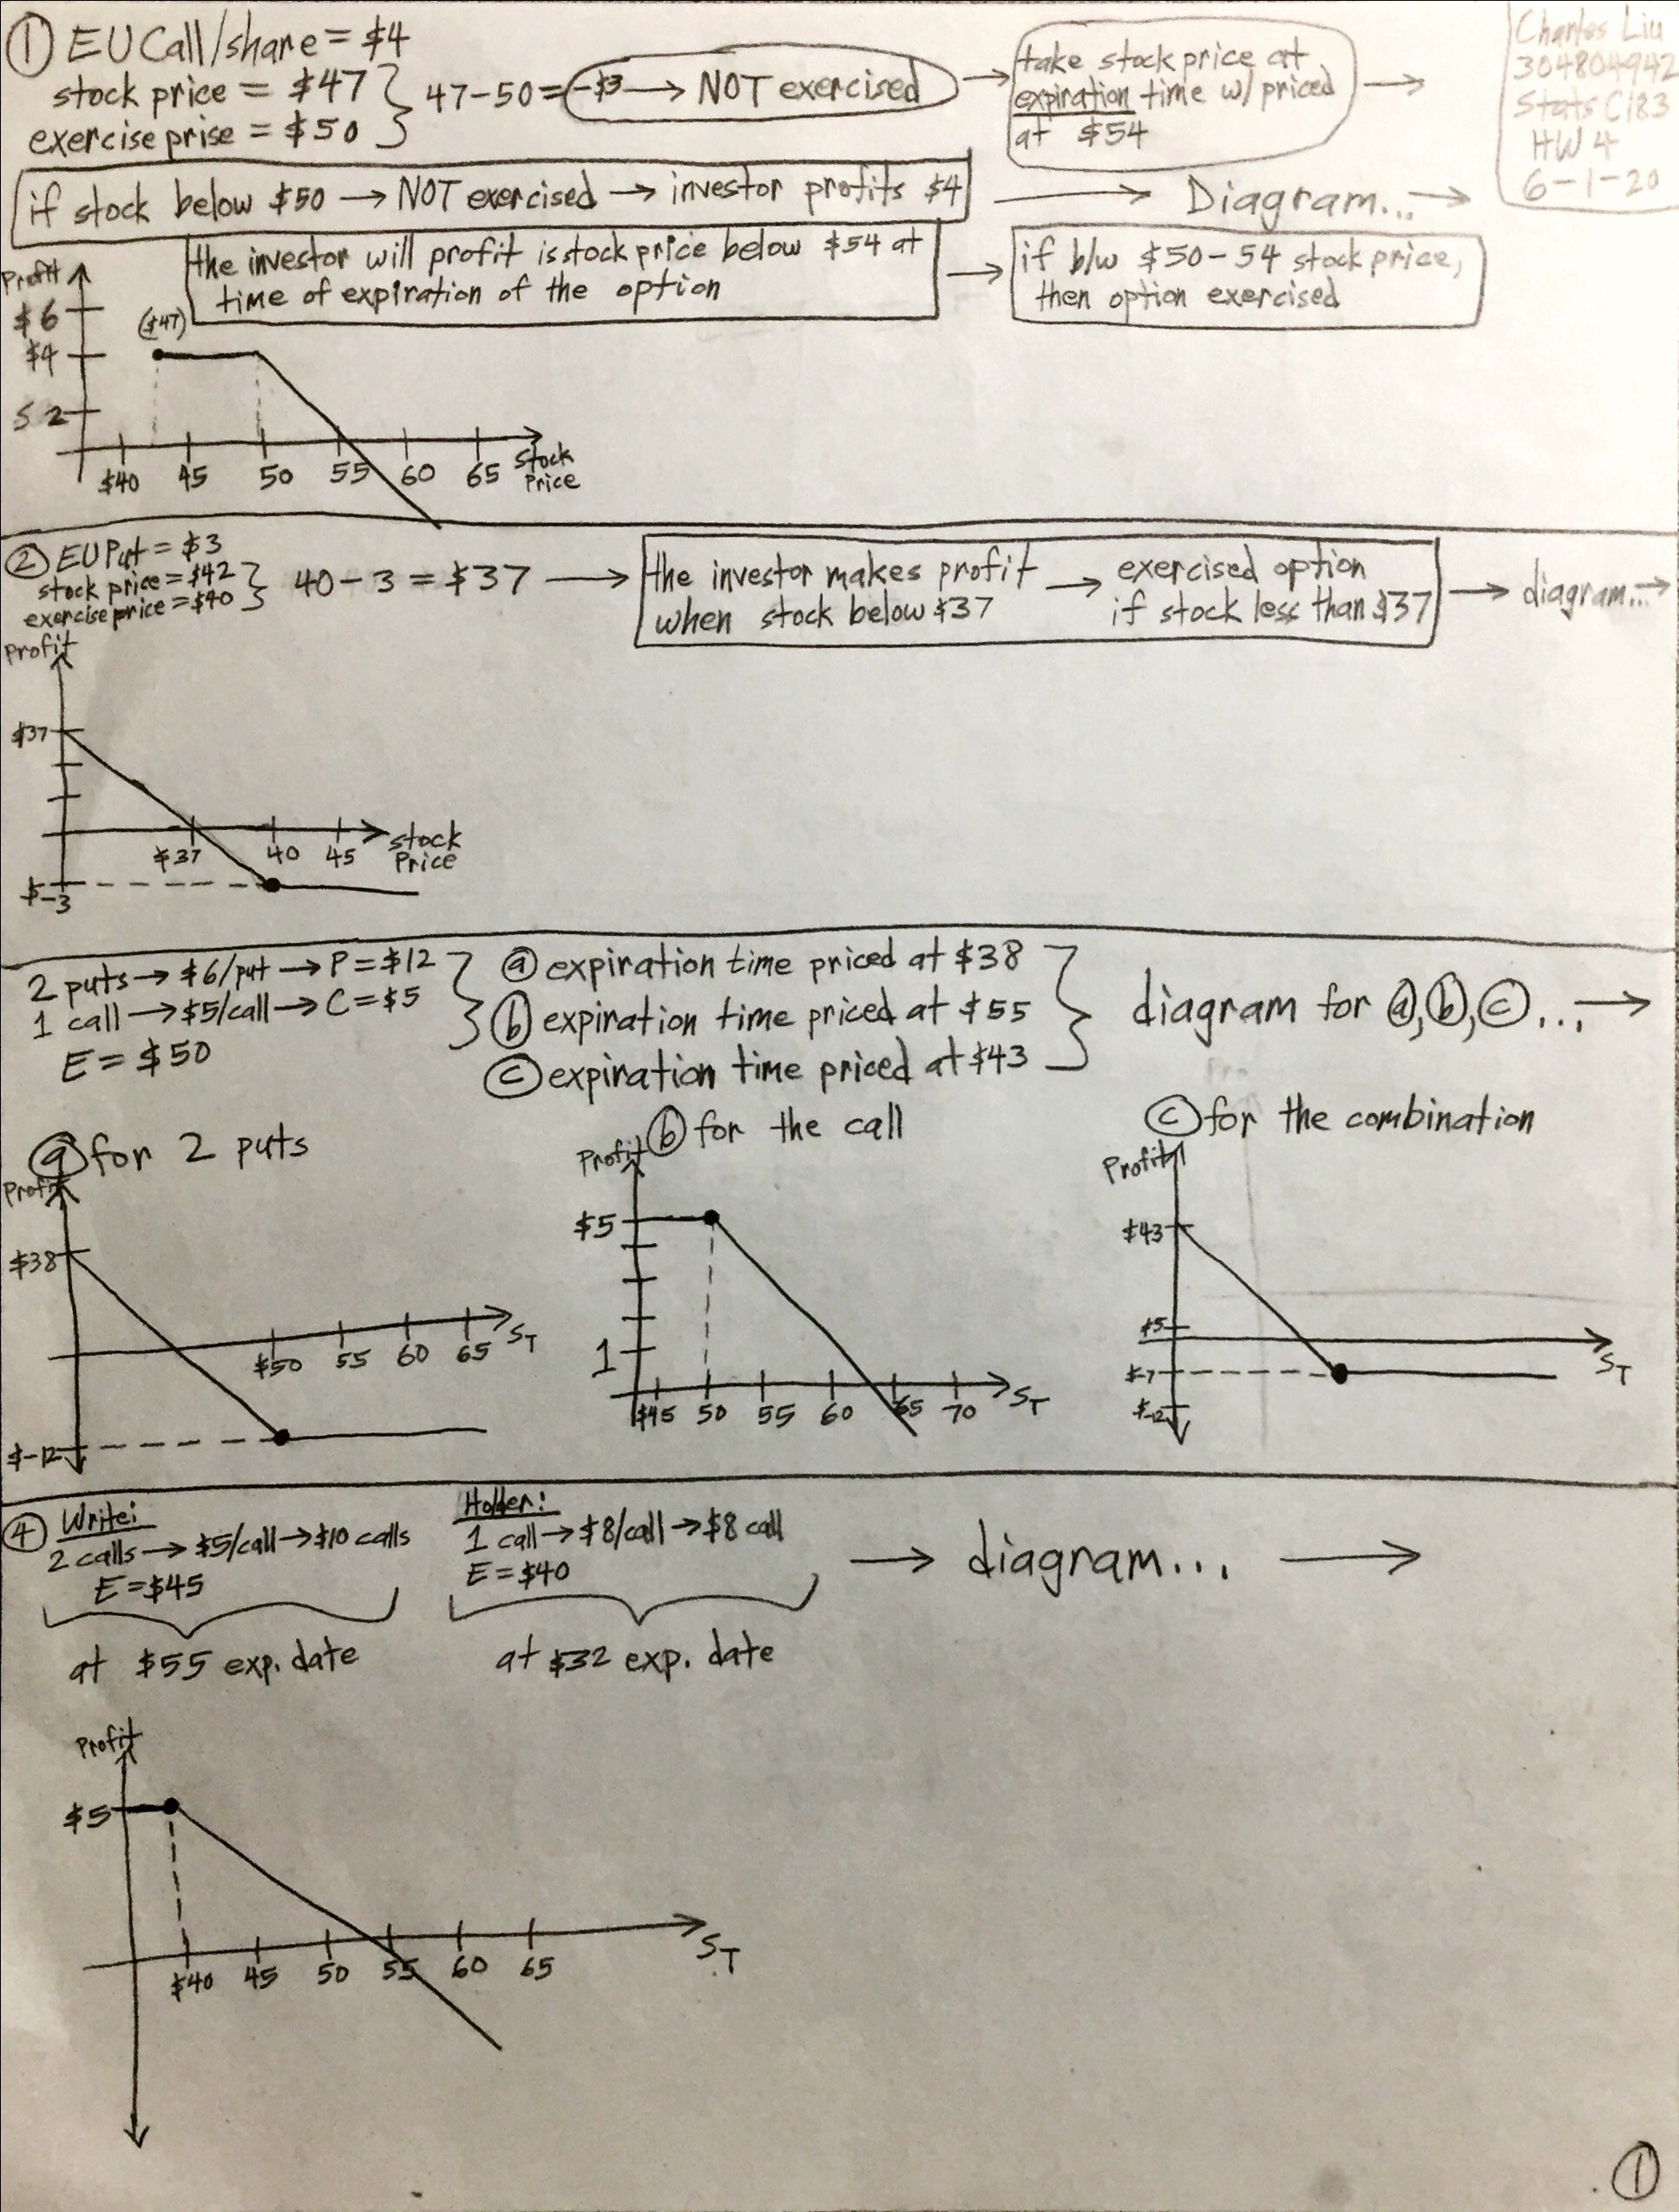 ① EU Call/share = $4
stock price = $47
exercise prise = $50
47-50 = -$3 → NOT exercised →
take stock price at
expiration time w/ priced
at $54
→
Charles Liu
304804942
Stats C183
HW 4
6-1-20
if stock below $50 → NOT exercised → investor profits $4
→ Diagram... →
the investor will profit is stock price below $54 at
time of expiration of the option
→ if b/w $50-54 stock price,
then option exercised
Profit
$6
($47)
$4
$2
$40 45 50 55 60 65
stock
Price
② EU Put = $3
stock price = $42
exercise price = $40
40 - 3 = $37 →
the investor makes profit
when stock below $37
→ exercised option
if stock less than $37
→ diagram... →
Profit
$37
$37 40 45
stock
Price
$-3
2 puts → $6/put → P = $12
1 call → $5/call → C = $5
E = $50
ⓐ expiration time priced at $38
ⓑ expiration time priced at $55
ⓒ expiration time priced at $43
diagram for ⓐ,ⓑ,ⓒ... →
ⓐ for 2 puts
Profit
$38
$50 55 60 65 S_T
$-12
ⓑ for the call
Profit
$5
1
$45 50 55 60 65 70 S_T
ⓒ for the combination
Profit
$43
$5
S_T
$-7
$-12
④ Write:
2 calls → $5/call → $10 calls
E = $45
at $55 exp. date
Holder:
1 call → $8/call → $8 call
E = $40
at $32 exp. date
→ diagram... →
Profit
$5
$40 45 50 55 60 65 S_T
①